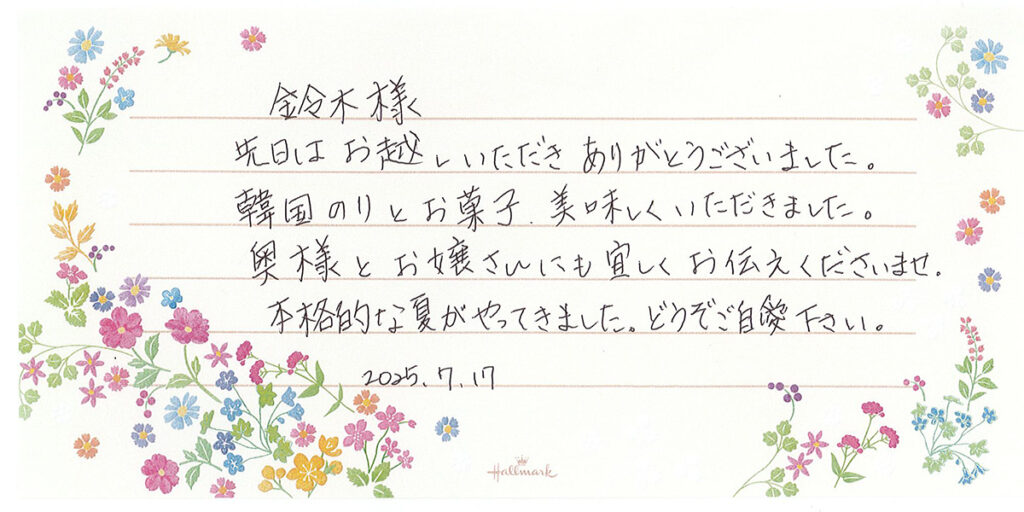 鈴木様
先日はお越しいただきありがとうございました。
韓国のりとお菓子、美味しくいただきました。
奥様とお嬢さんにも宜しくお伝えくださいませ。
本格的な夏がやってきました。どうぞご自愛下さい。
2025.7.17
Hallmark